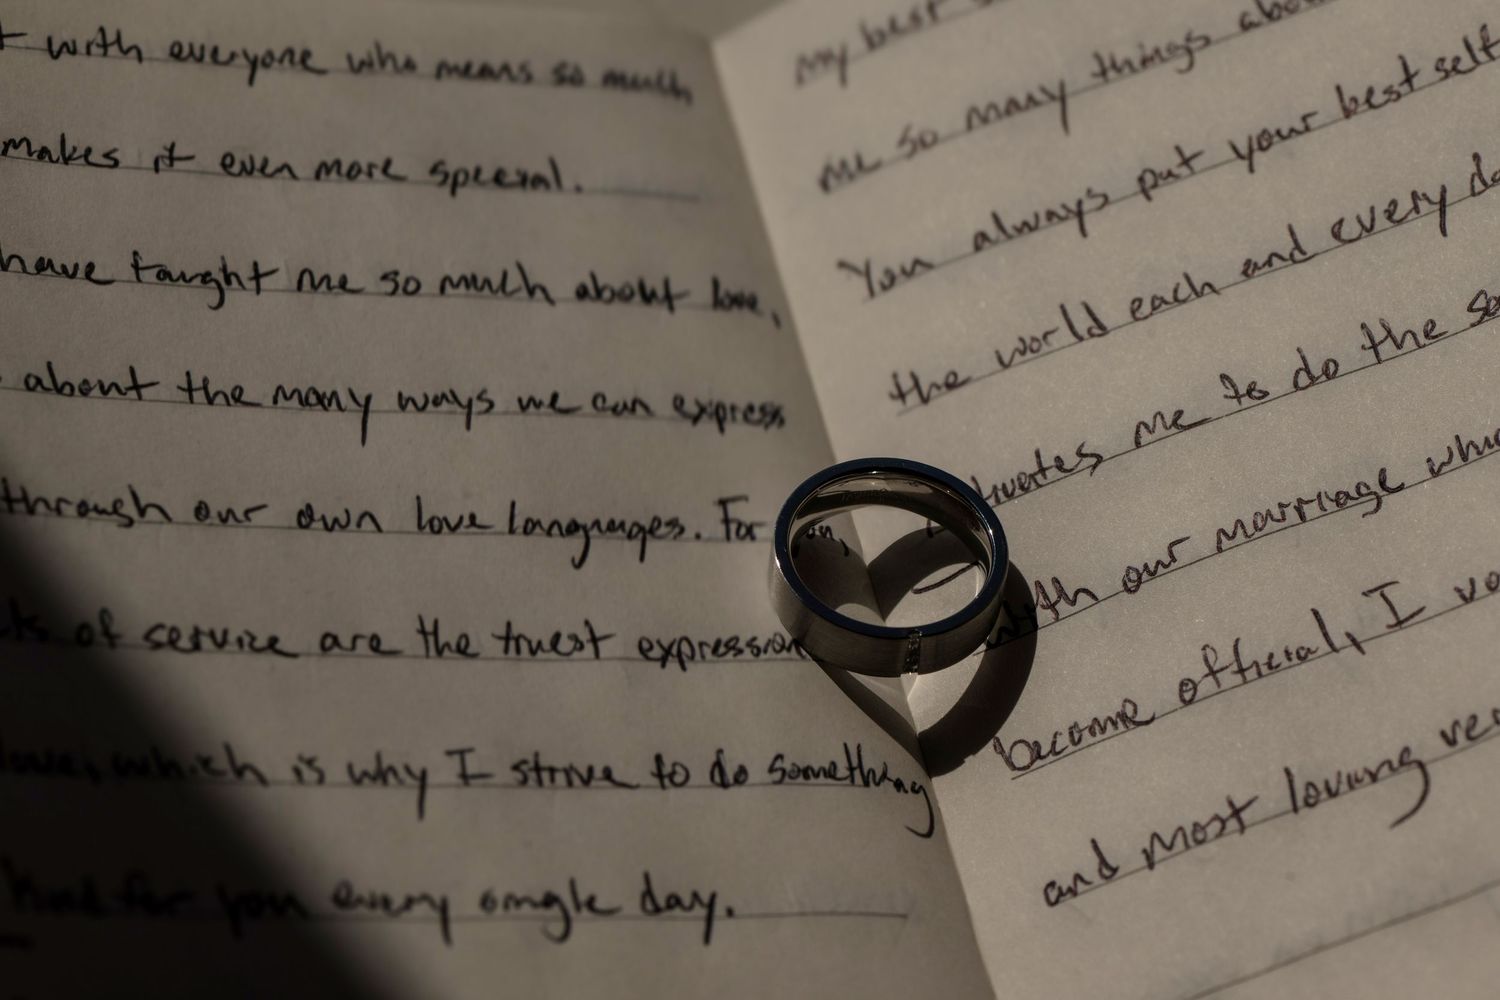 with everyone who means so much
makes it even more special.
have taught me so much about love,
about the many ways we can express
through our own love languages. For you,
of service are the truest expression
love, which is why I strive to do something
kind for you every single day.
My best
me so many things about
You always put your best self
the world each and every
me to do the
with our marriage
become official, I
and most loving